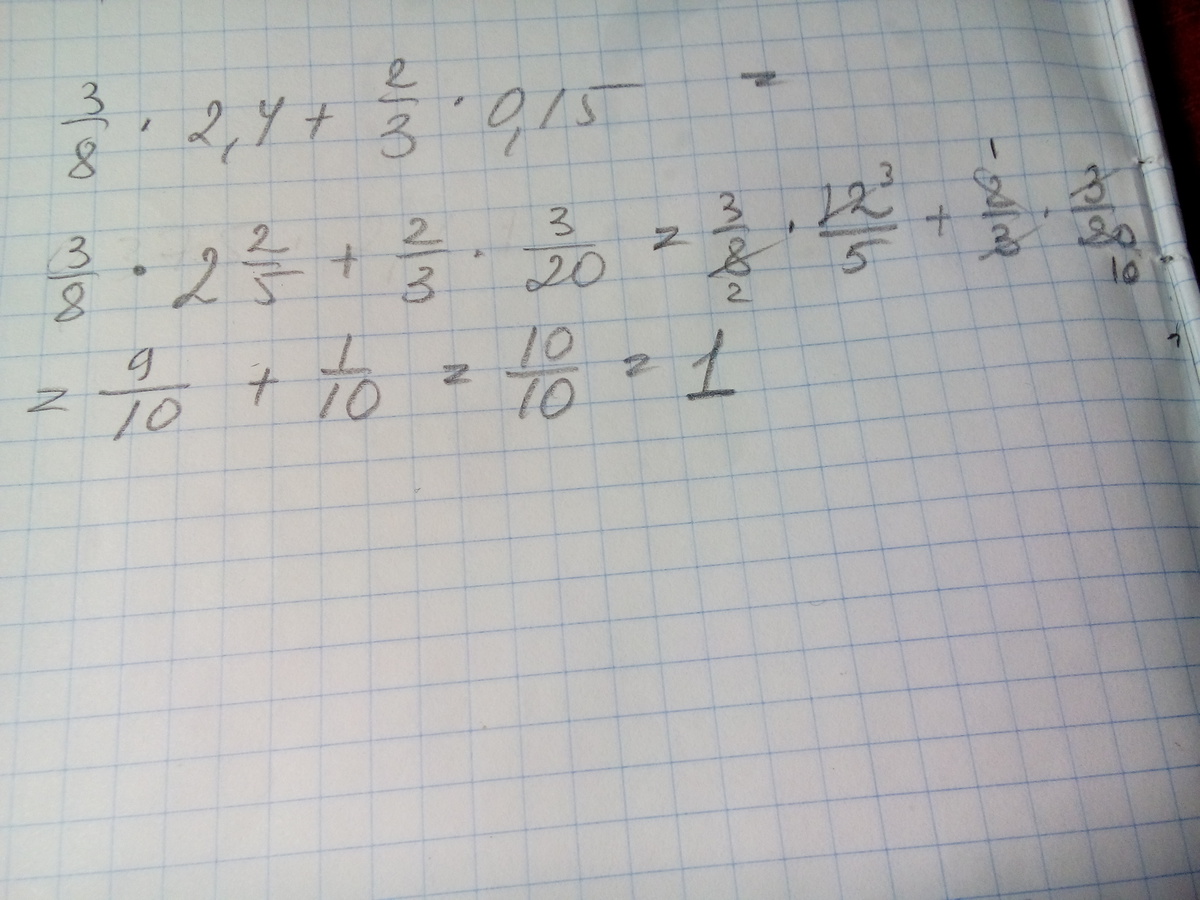 3/8 · 2,4 + 2/3 · 0,15 =
3/8 · 2 2/5 + 2/3 · 3/20 = 3/8 2 · 12 3/5 + 1 2/3 · 3/20 10
= 9/10 + 1/10 = 10/10 = 1